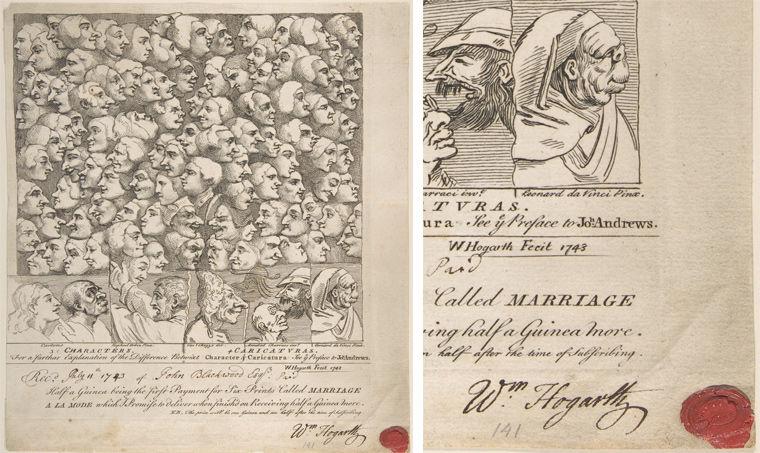 Leonard da Vinci Pinx.
3 CHARACTERS. 4 CARICATVRAS.
For a farthar Explanation of the Difference Betwixt Character & Caricatura See yᵉ Preface to Joʰ Andrews.
W Hogarth Fecit 1743
Recᵈ July 11ᵗʰ 1743 of John Blackwood Esqʳ Paid
Half a Guinea being the first Payment for Six Prints Called MARRIAGE
A LA MODE which I Promise to Deliver when finish'd on Receiving half a Guinea more.
N.B. The price will be one Guinea and an half after the time of Subscribing.
Wᵐ Hogarth
141
arracci invᵗ Leonard da Vinci Pinx.
ATVRAS.
ura See yᵉ Preface to Joʰ Andrews.
W Hogarth Fecit 1743
Paid
Called MARRIAGE
ving half a Guinea more.
n half after the time of Subscribing.
Wᵐ Hogarth
141